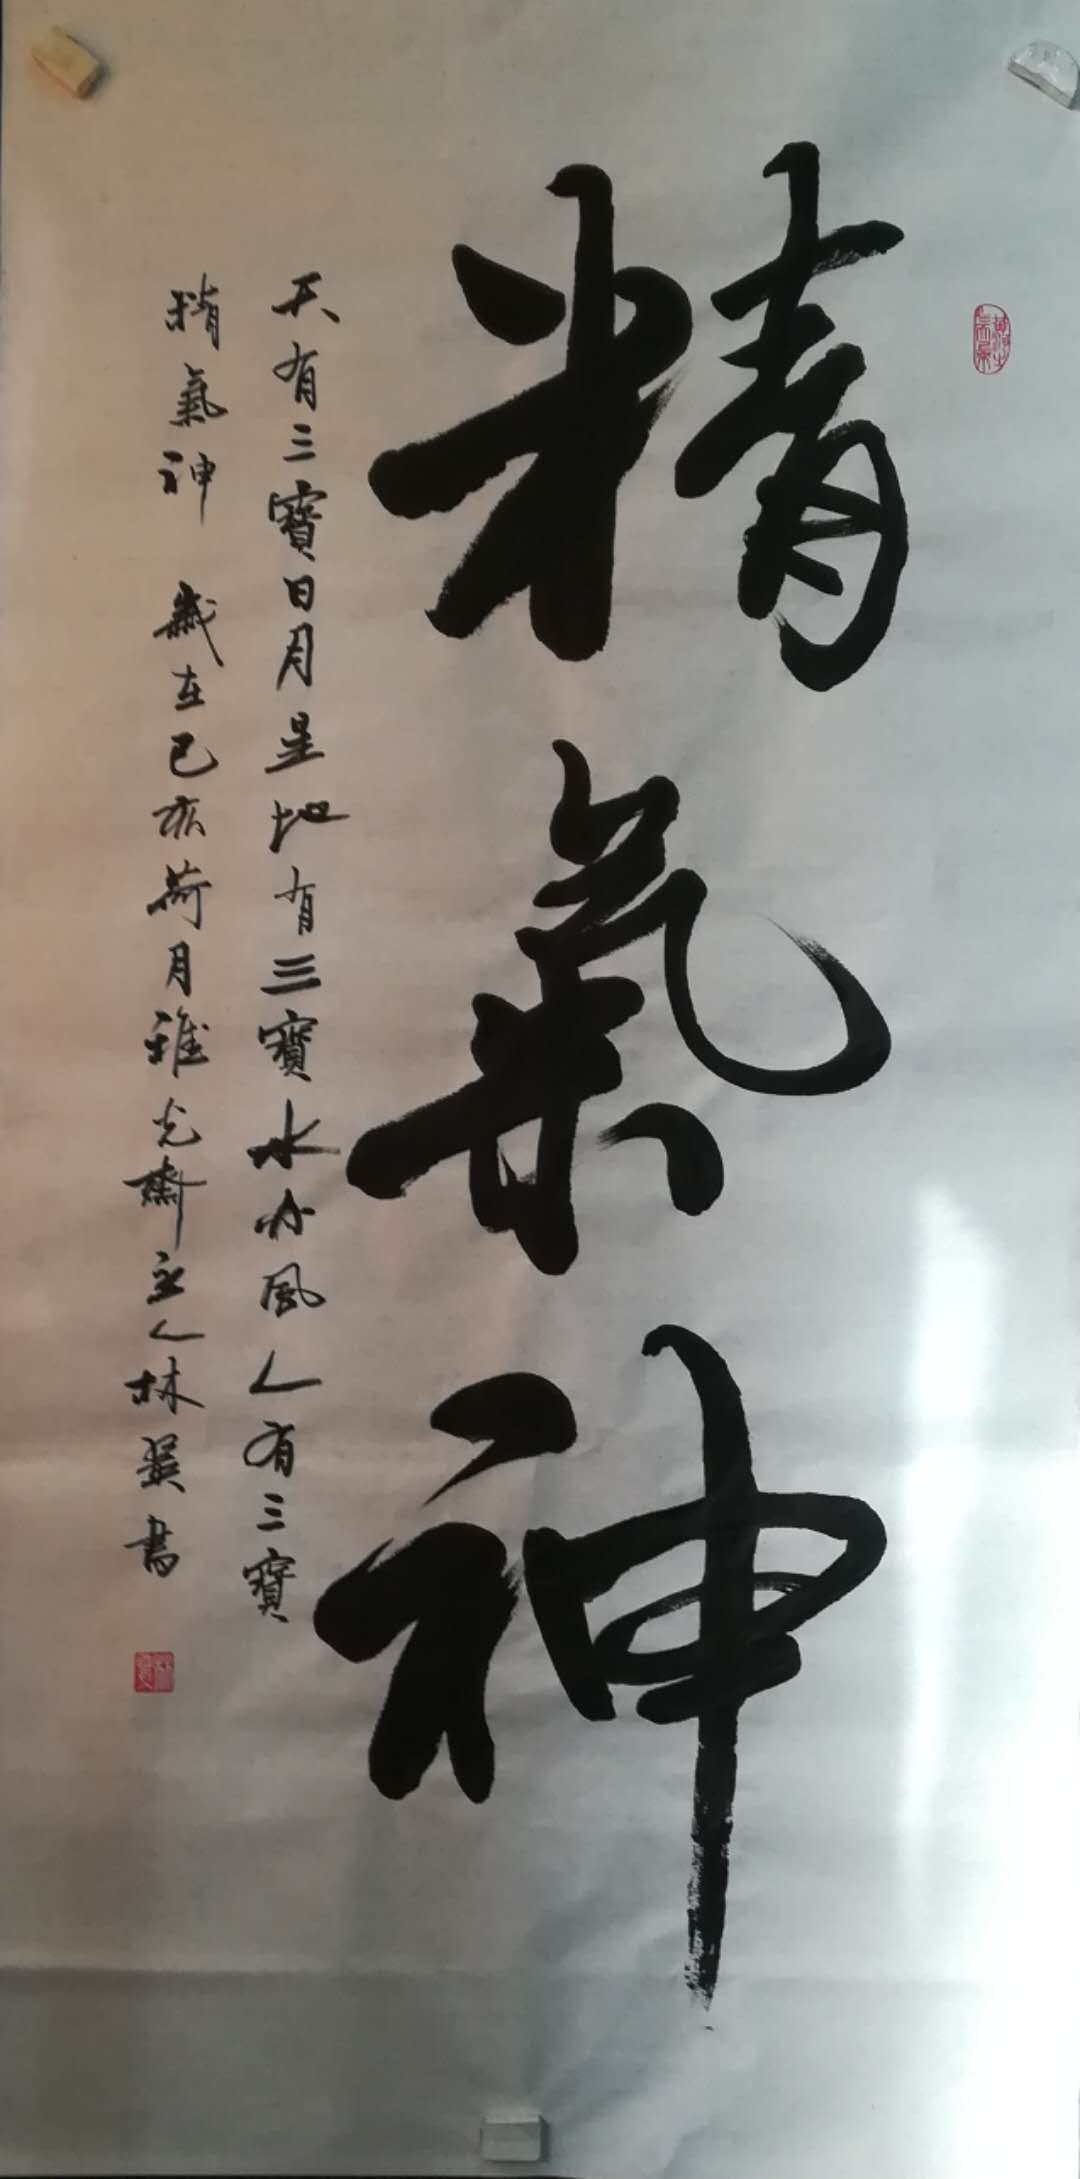 精氣神
天有三寶日月星地有三寶水火風人有三寶
精氣神 歲在己亥荷月雅光齋主人林巽書